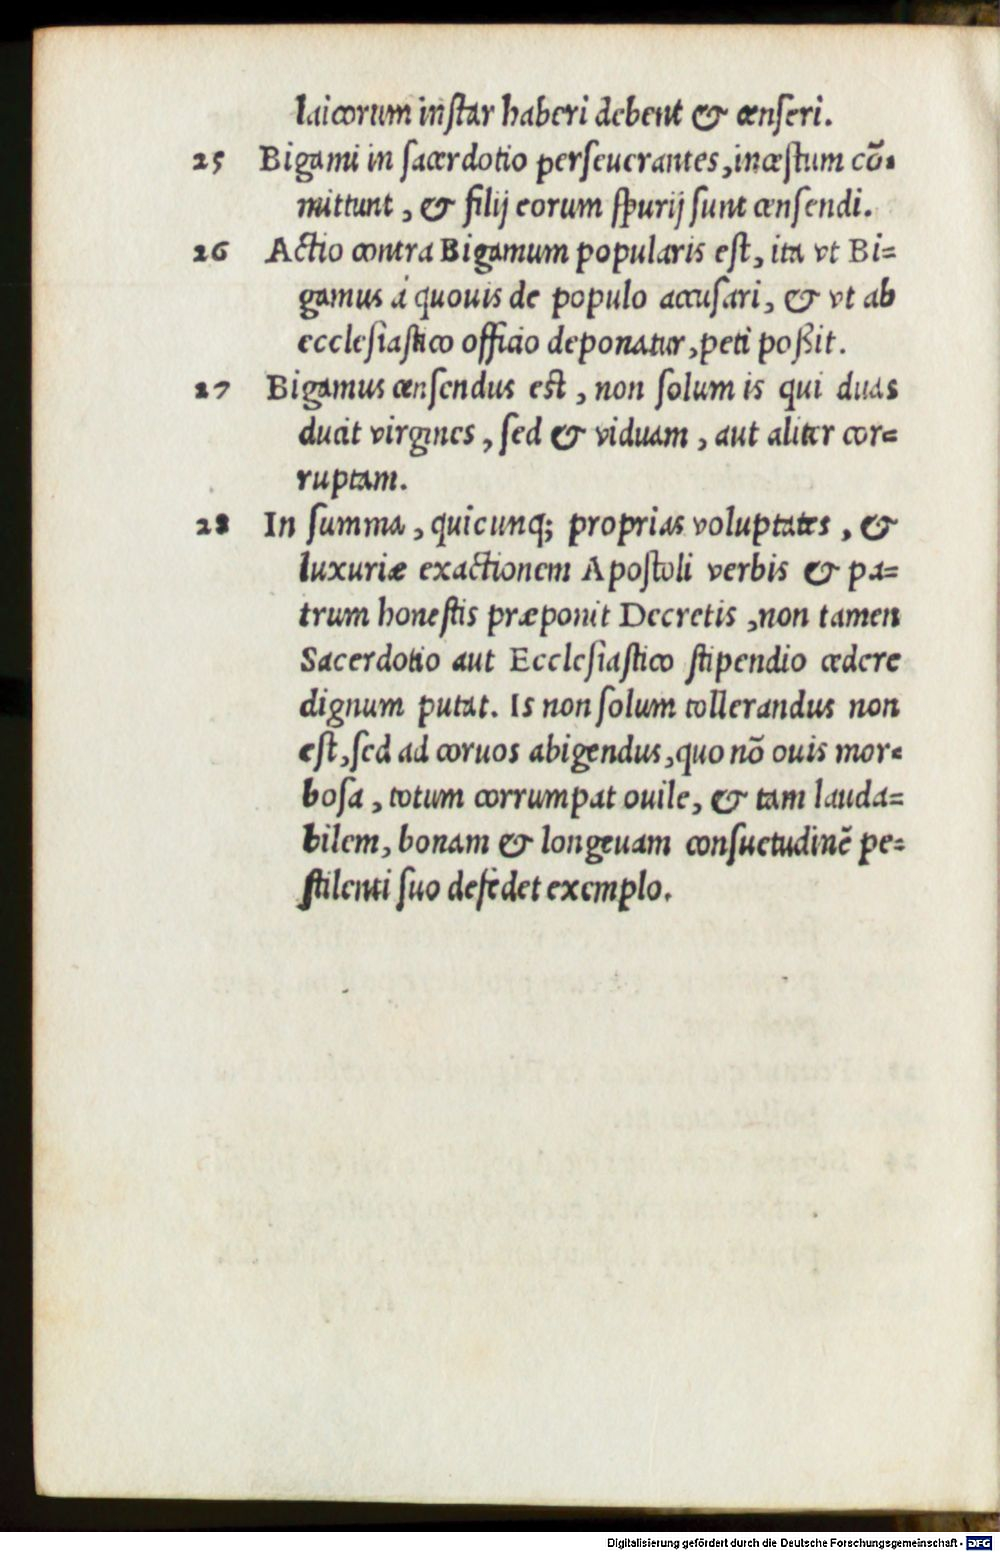 laicorum instar haberi debent & censeri.
25 Bigami in sacerdotio perseuerantes, incæstum cō-
mittunt, & filij eorum spurij sunt censendi.
26 Actio contra Bigamum popularis est, ita vt Bi=
gamus á quouis de populo accusari, & vt ab
ecclesiastico officio deponatur, peti poßit.
27 Bigamus censendus est, non solum is qui duas
ducit virgines, sed & viduam, aut aliter cor=
ruptam.
28 In summa, quicunq; proprias voluptates, &
luxuriæ exactionem Apostoli verbis & pa=
trum honestis præponit Decretis, non tamen
Sacerdotio aut Ecclesiastico stipendio cedere
dignum putat. Is non solum tollerandus non
est, sed ad coruos abigendus, quo nō ouis mor=
bosa, totum corrumpat ouile, & tam lauda=
bilem, bonam & longeuam consuetudinē pe=
stilenti suo defedet exemplo.
Digitalisierung gefördert durch die Deutsche Forschungsgemeinschaft - DFG